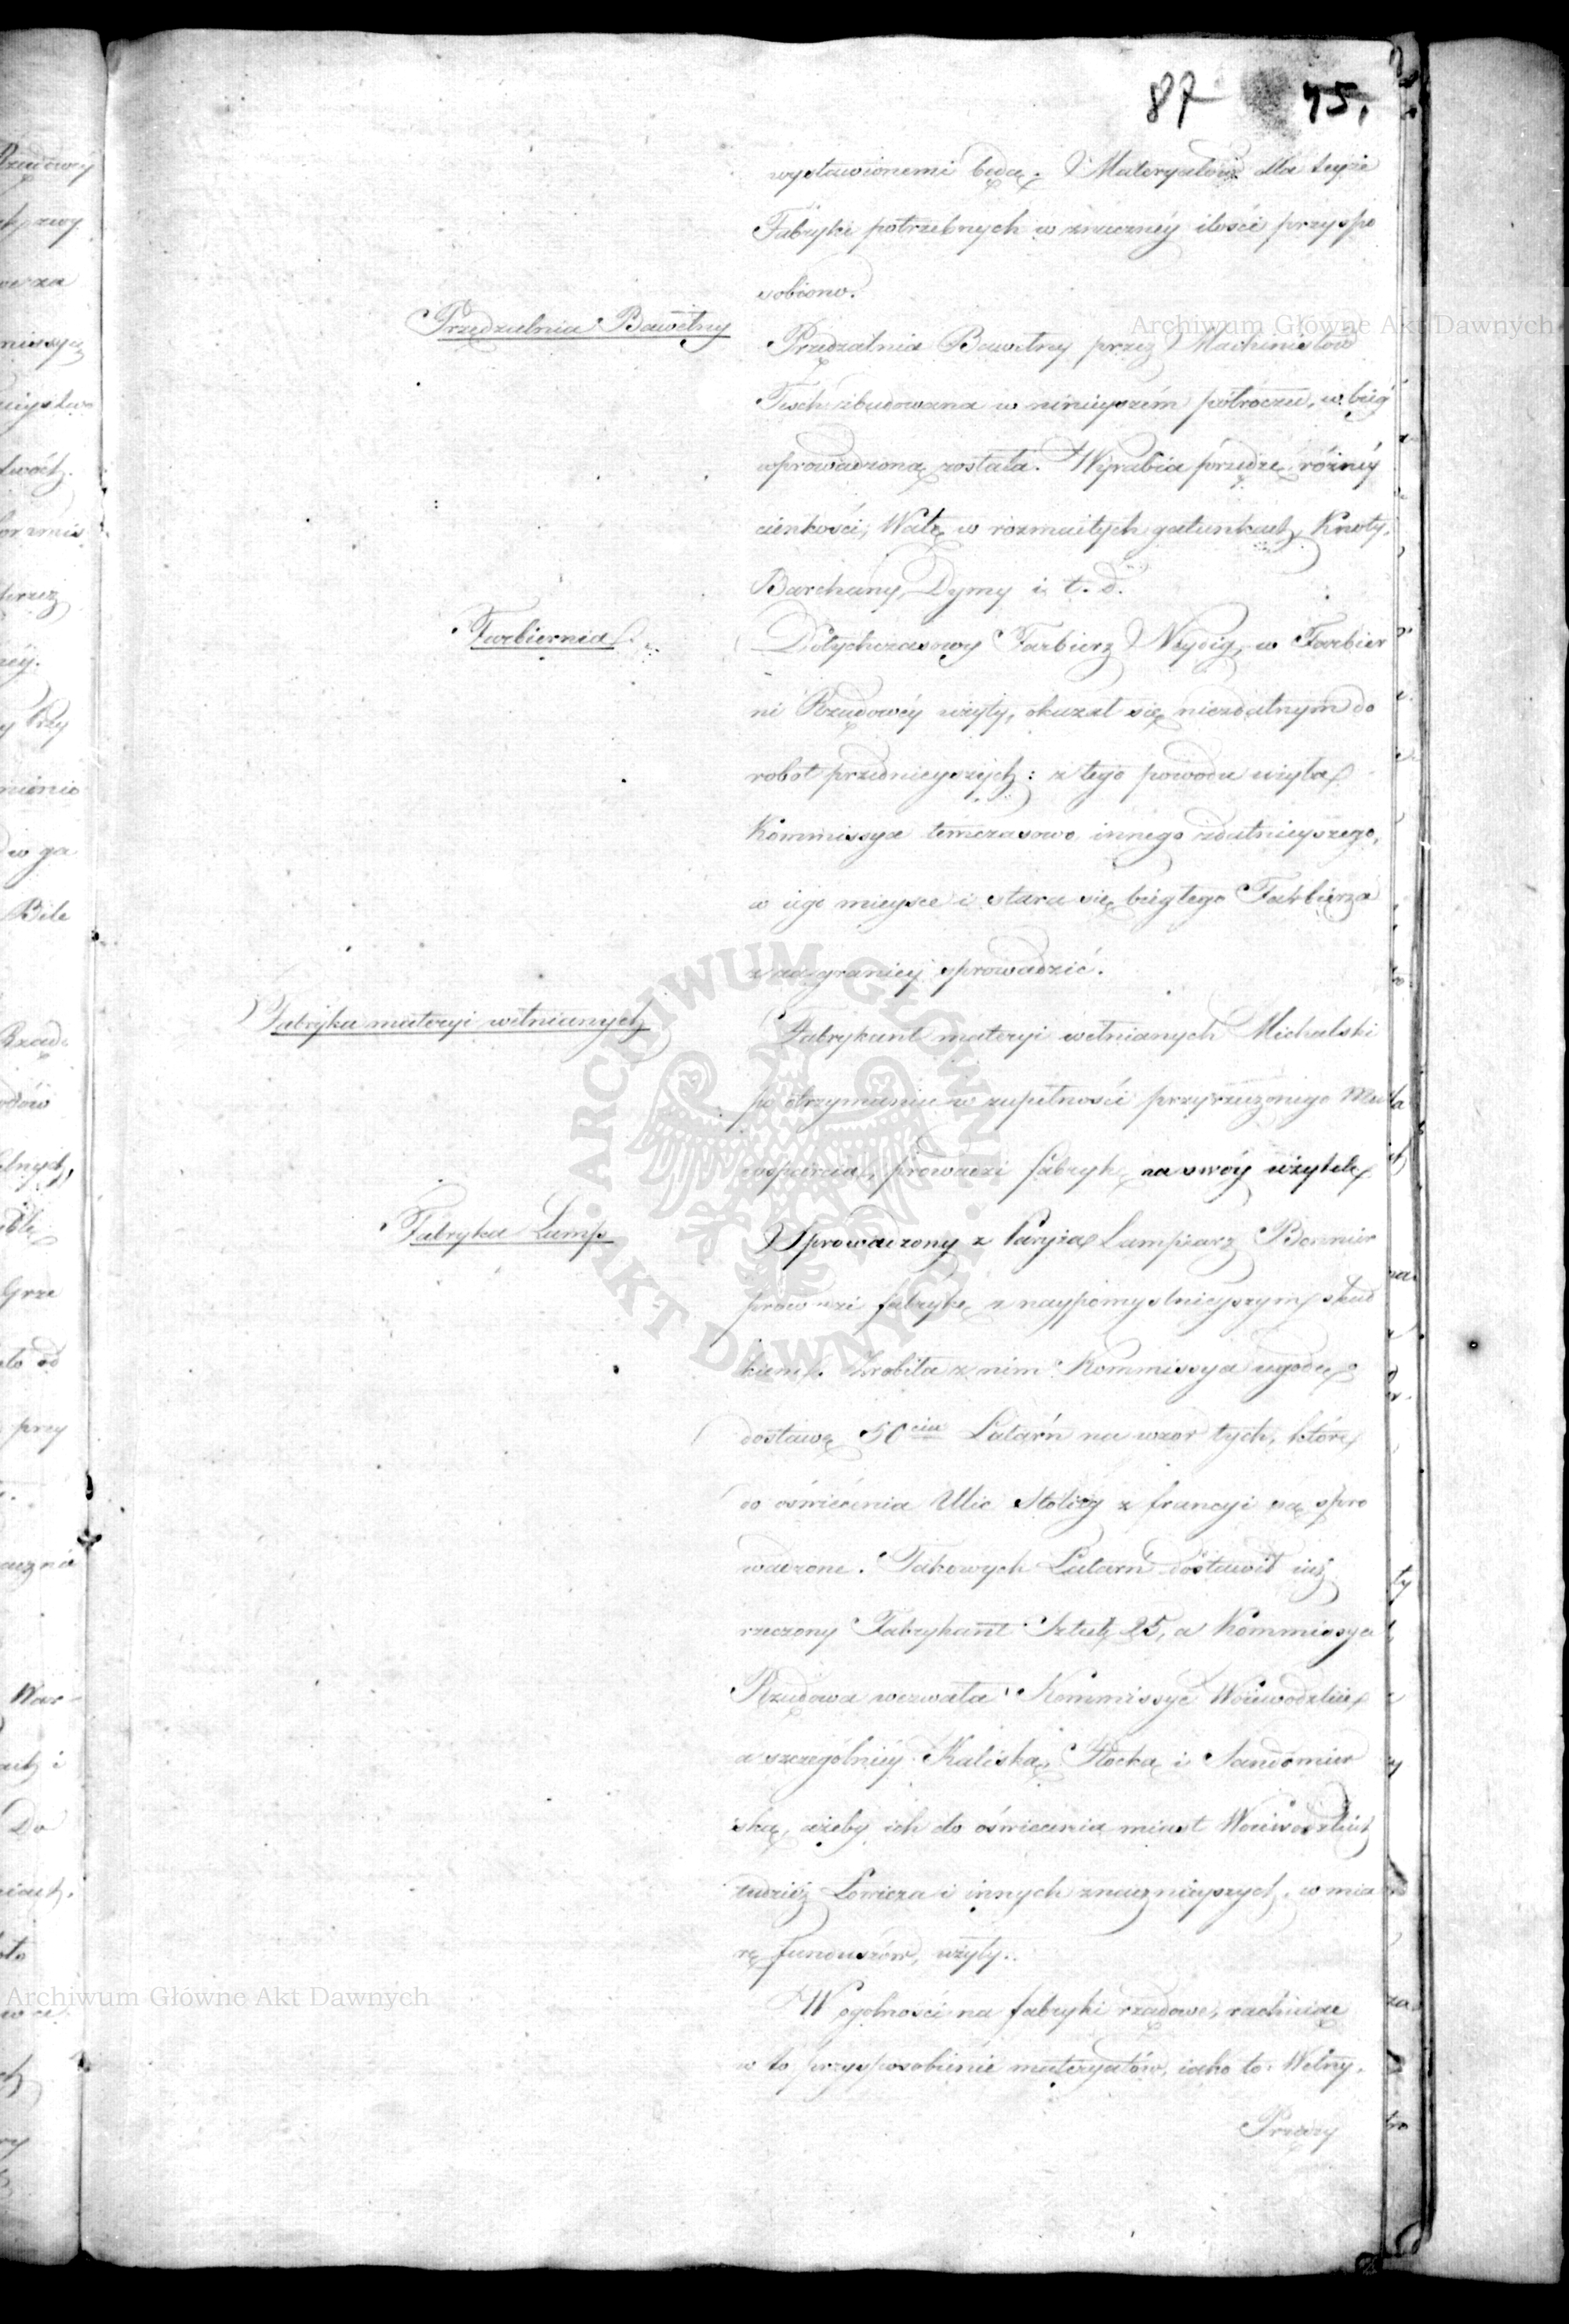 87 45.
wystawionemi będą. Materyałów dla teyże
Fabryki potrzebnych w znacznéy ilości przyspo
sobiono.
Przędzalnia Bawełny
Przędzalnia Bawełny przez Machinistów
zbudowana w ninieyszém półroczu, w bieg
wprowadzoną została. Wyrabia przędzę różnéy
cienkości, Watę w rozmaitych gatunkach, Knoty,
Barchany, Dymy i t. d.
Farbiernia
Dotychczasowy Farbierz Neydig, w Farbier
ni Rządowéy użyty, okazał się niezdatnym do
robot przednieyszych: z tego powodu użyła
Kommissya temczasowo innego zdatnieyszego,
w iego mieysce i stara się biegłego Farbierza
z zagranicy sprowadzić.
Fabryka materyi wełnianych
Fabrykant materyi wełnianych Michalski
po otrzymaniu w zupełności przyrzeczonego Mu
wsparcia, prowadzi fabrykę na swóy użytek
Fabryka Lamp
Sprowadzony z Paryża Lampiarz
prowadzi fabrykę z naypomyślnieyszym skut
kiem. Zrobiła z nim Kommissya ugodę o
dostawę 50ciu Latarń na wzor tych, które
do oświécenia Ulic Stolicy z francyi są spro
wadzone. Takowych Latarń dostawił iuż
rzeczony Fabrykant Sztuk 25, a Kommissya
Rządowa wezwała Kommissye Woiewodzkie
a szczególniéy Kaliską, Płocką i Sandomier
ską, ażeby ich do oświecenia miast Woiewodzkich
tudzież Łowicza i innych znacznieyszych, w mia
rę funduszów, użyły.
W ogolności na fabryki rządowe, rachuiąc
w to przysposobienie materyałów, iako to: Wełny,
Przędzy
Archiwum Główne Akt Dawnych
Archiwum Główne Akt Dawnych
ARCHIWUM GŁÓWNE AKT DAWNYCH